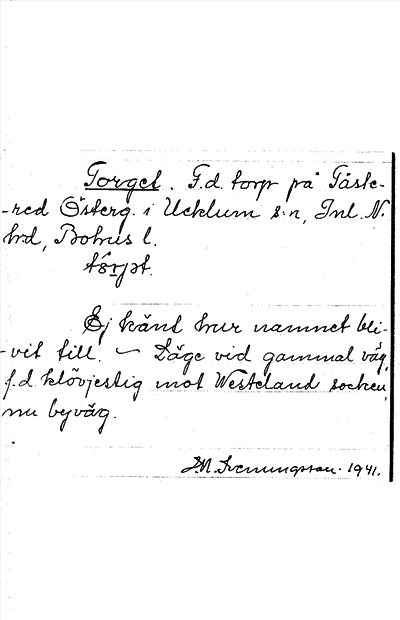 Torget. F.d. torp på Gåste-
-red Österg. i Ucklum s:n, Inl. N.
hrd, Bohus l.
Ej känt hur namnet bli-
-vit till. — Läge vid gammal väg,
f.d. klövjestig mot Westerland socken,
nu byväg.
J.M. Svenungsson. 1941.